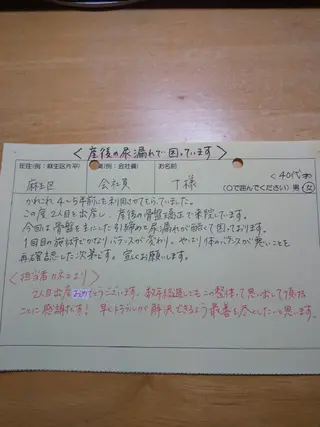 <産後の尿漏れで困っています>
住住(例：麻生区片平)
業(例：会社員)
お名前
麻生区
会社員
T様
<40代>
(○で囲んでください) 男 女
かれこれ4～5年前にも利用させてもらっていました。
この度2人目を出産し、産後の骨盤矯正で来院しています。
今回は骨盤を主にした引締めも尿漏れが酷くて困っております。
1回目の施術でかなりバランスが変わり、やはり体のバランスが悪いことを
再確認した次第です。宜しくお願いします。
<担当者カネコより>
2人目出産おめでとうございます。お年経過してもこの整体を思い出して頂けた
ことに感謝だす！早くトラブルが解決できるよう最善を尽くしたいと思います。